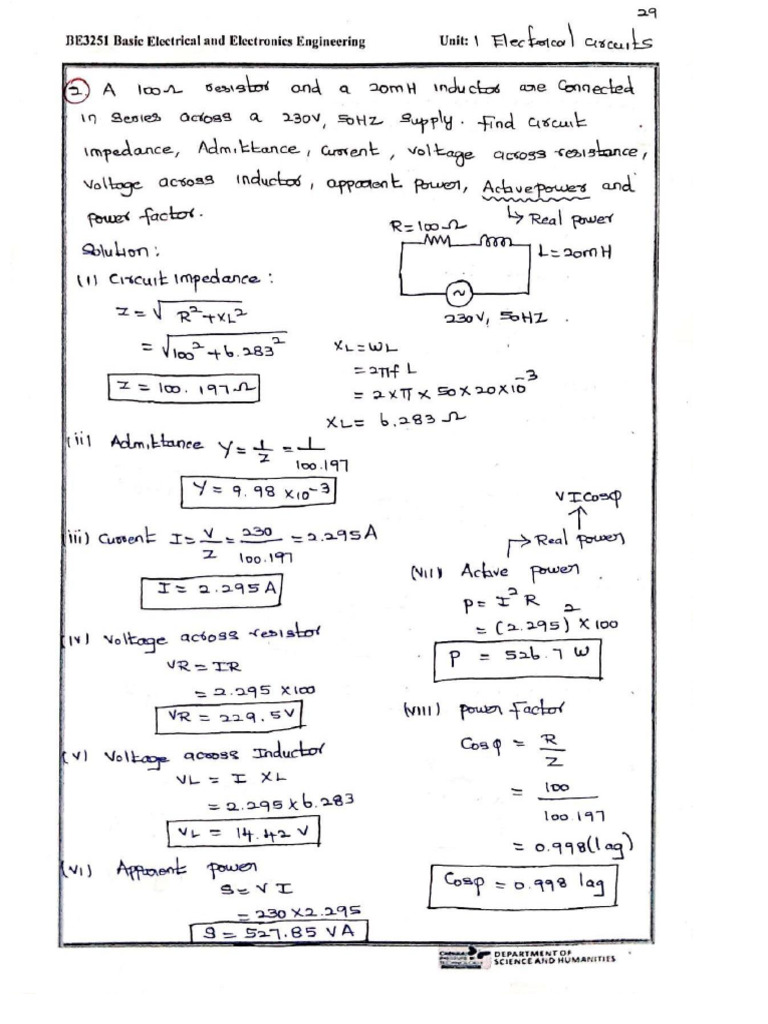 29
BE3251 Basic Electrical and Electronics Engineering Unit: 1 Electrical circuits
2. A 100Ω resistor and a 20mH inductor are connected
in series across a 230V, 50HZ supply. Find circuit
impedance, Admittance, current, voltage across resistance,
voltage across inductor, apparent power, Active power and
power factor.
↳ Real power
R=100Ω
L=20mH
230V, 50HZ.
Solution:
(i) Circuit impedance:
Z=√R²+XL²
=√100²+6.283²
Z=100.197Ω
XL=WL
=2πfL
=2×π×50×20×10⁻³
XL=6.283Ω
(ii) Admittance Y=1/Z=1/100.197
Y=9.98×10⁻³
(iii) Current I=V/Z=230/100.197=2.295A
I=2.295A
(iv) Voltage across resistor
VR=IR
=2.295×100
VR=229.5V
(v) Voltage across Inductor
VL=I XL
=2.295×6.283
VL=14.42V
(vi) Apparent power
S=VI
=230×2.295
S=527.85VA
VICosφ
↑
→Real power
(vii) Active power
P=I²R
=(2.295)²×100
P=526.7W
(viii) power factor
Cosφ=R/Z
=100/100.197
=0.998(lag)
Cosφ=0.998 lag
DEPARTMENT OF
SCIENCE AND HUMANITIES